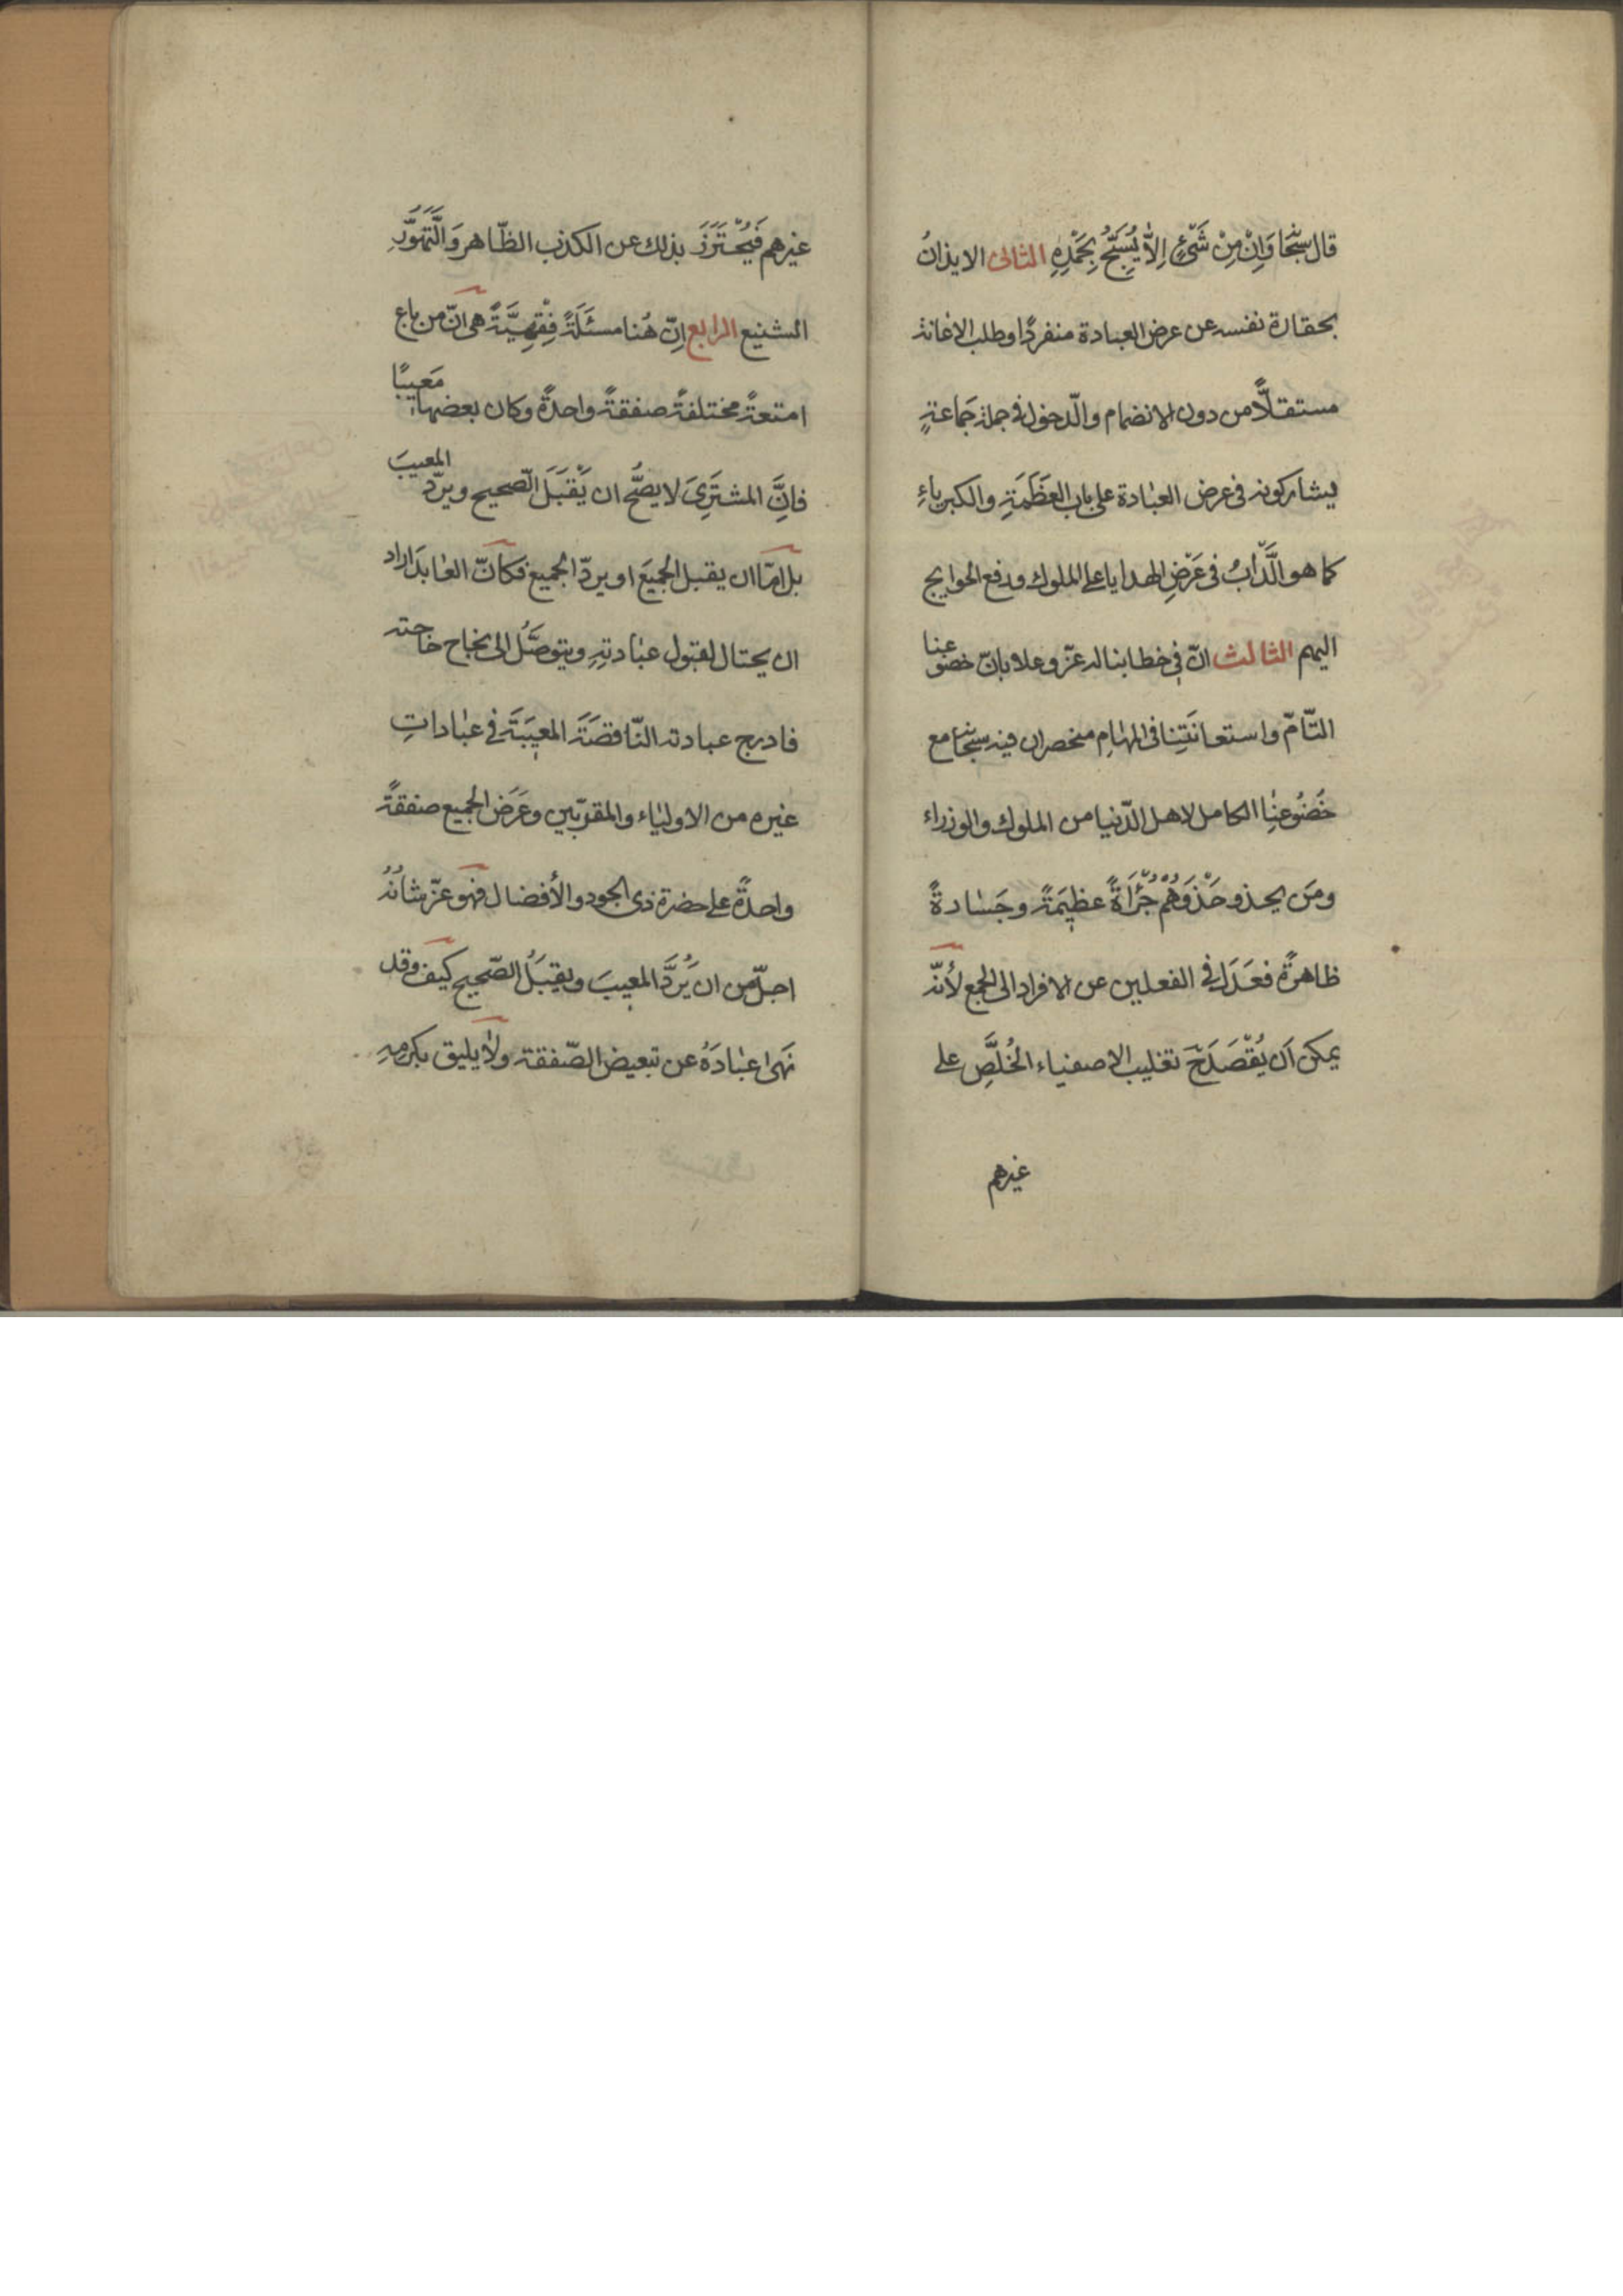 قال سبحا وَاِنْ مِنْ شَیْئٍ اِلاّٰ يُسَبِّحُ بِحَمْدِهِ الثانی الايذانُ
بحقارة نفسه عن عرض العبادة منفردًا وطلب الاغانة
مستقلًّا من دون الانضمام والدّخول فی جملة جَماعةٍ
يشاركونه فی عرض العبٰادة علی باب العَظَمَةِ والكبرياءِ
كما هو الَّدأبُ فی عَرْضِ الهدايا علی الملوك ودفع الحوايج
اليهم الثالث انّ فی خطابنا له عزّ وعلا بانّ خضوعنا
التّامّ واستعانَتِنا فی المهٰامِ منحصران فيه سبحانه مع
خُضُوعنِٰا الكامل لاهل الدّنيا من الملوك والوزراء
ومَن يحذو حَذْوَهُمْ جُرْأَةً عظيمَةً وجَسٰارةً
ظاهرةً فعَدَل فی الفعلين عن الافراد الی الجمع لأنّه
يمكن اَن يُقْصَدَ ح تغليب الاصفياء الخُلَّصِ علی
غيرهم
غيرهم فَيُحْتَرَزَ بذلك عن الكذب الظّاهر وَالَّتَهَوُّرِ
الشنيع الرابع اِنّ هُنا مسئَلَةً فِقْهِيَّةً هی انّ من باع
امتعةً مختلفةً صفقةً واحدةً وكان بعضها مَعيبًا
فاِنَّ المشتَرِیَ لا يصُّح ان يَقْبَلَ الصّحيح ويردّ المعيبَ
بل امّا ان يقبل الجميَعَ او يردّ الجميع فكأنّ العٰابدَ اراد
ان يحتال لقبول عبٰادتهِ ويتوصَّلُ الی نجاح حٰاجته
فادرج عبادته النّاقصَةَ المعيَبَةَ فی عبٰاداتِ
غيره من الاوليٰاء والمقرّبين وعَرَضَ الجميع صفقةً
واحدةً علی حضرة ذی الجود والأفضال فهو عزّ شأنُهُ
اجلّ من ان يَرُدَّ المعيبَ ويقبَلُ الصّحيح كيف وقد
نهىٰ عبٰادَهُ عن تبعيض الصّفقة ولاٰ يليق بكرمهِ